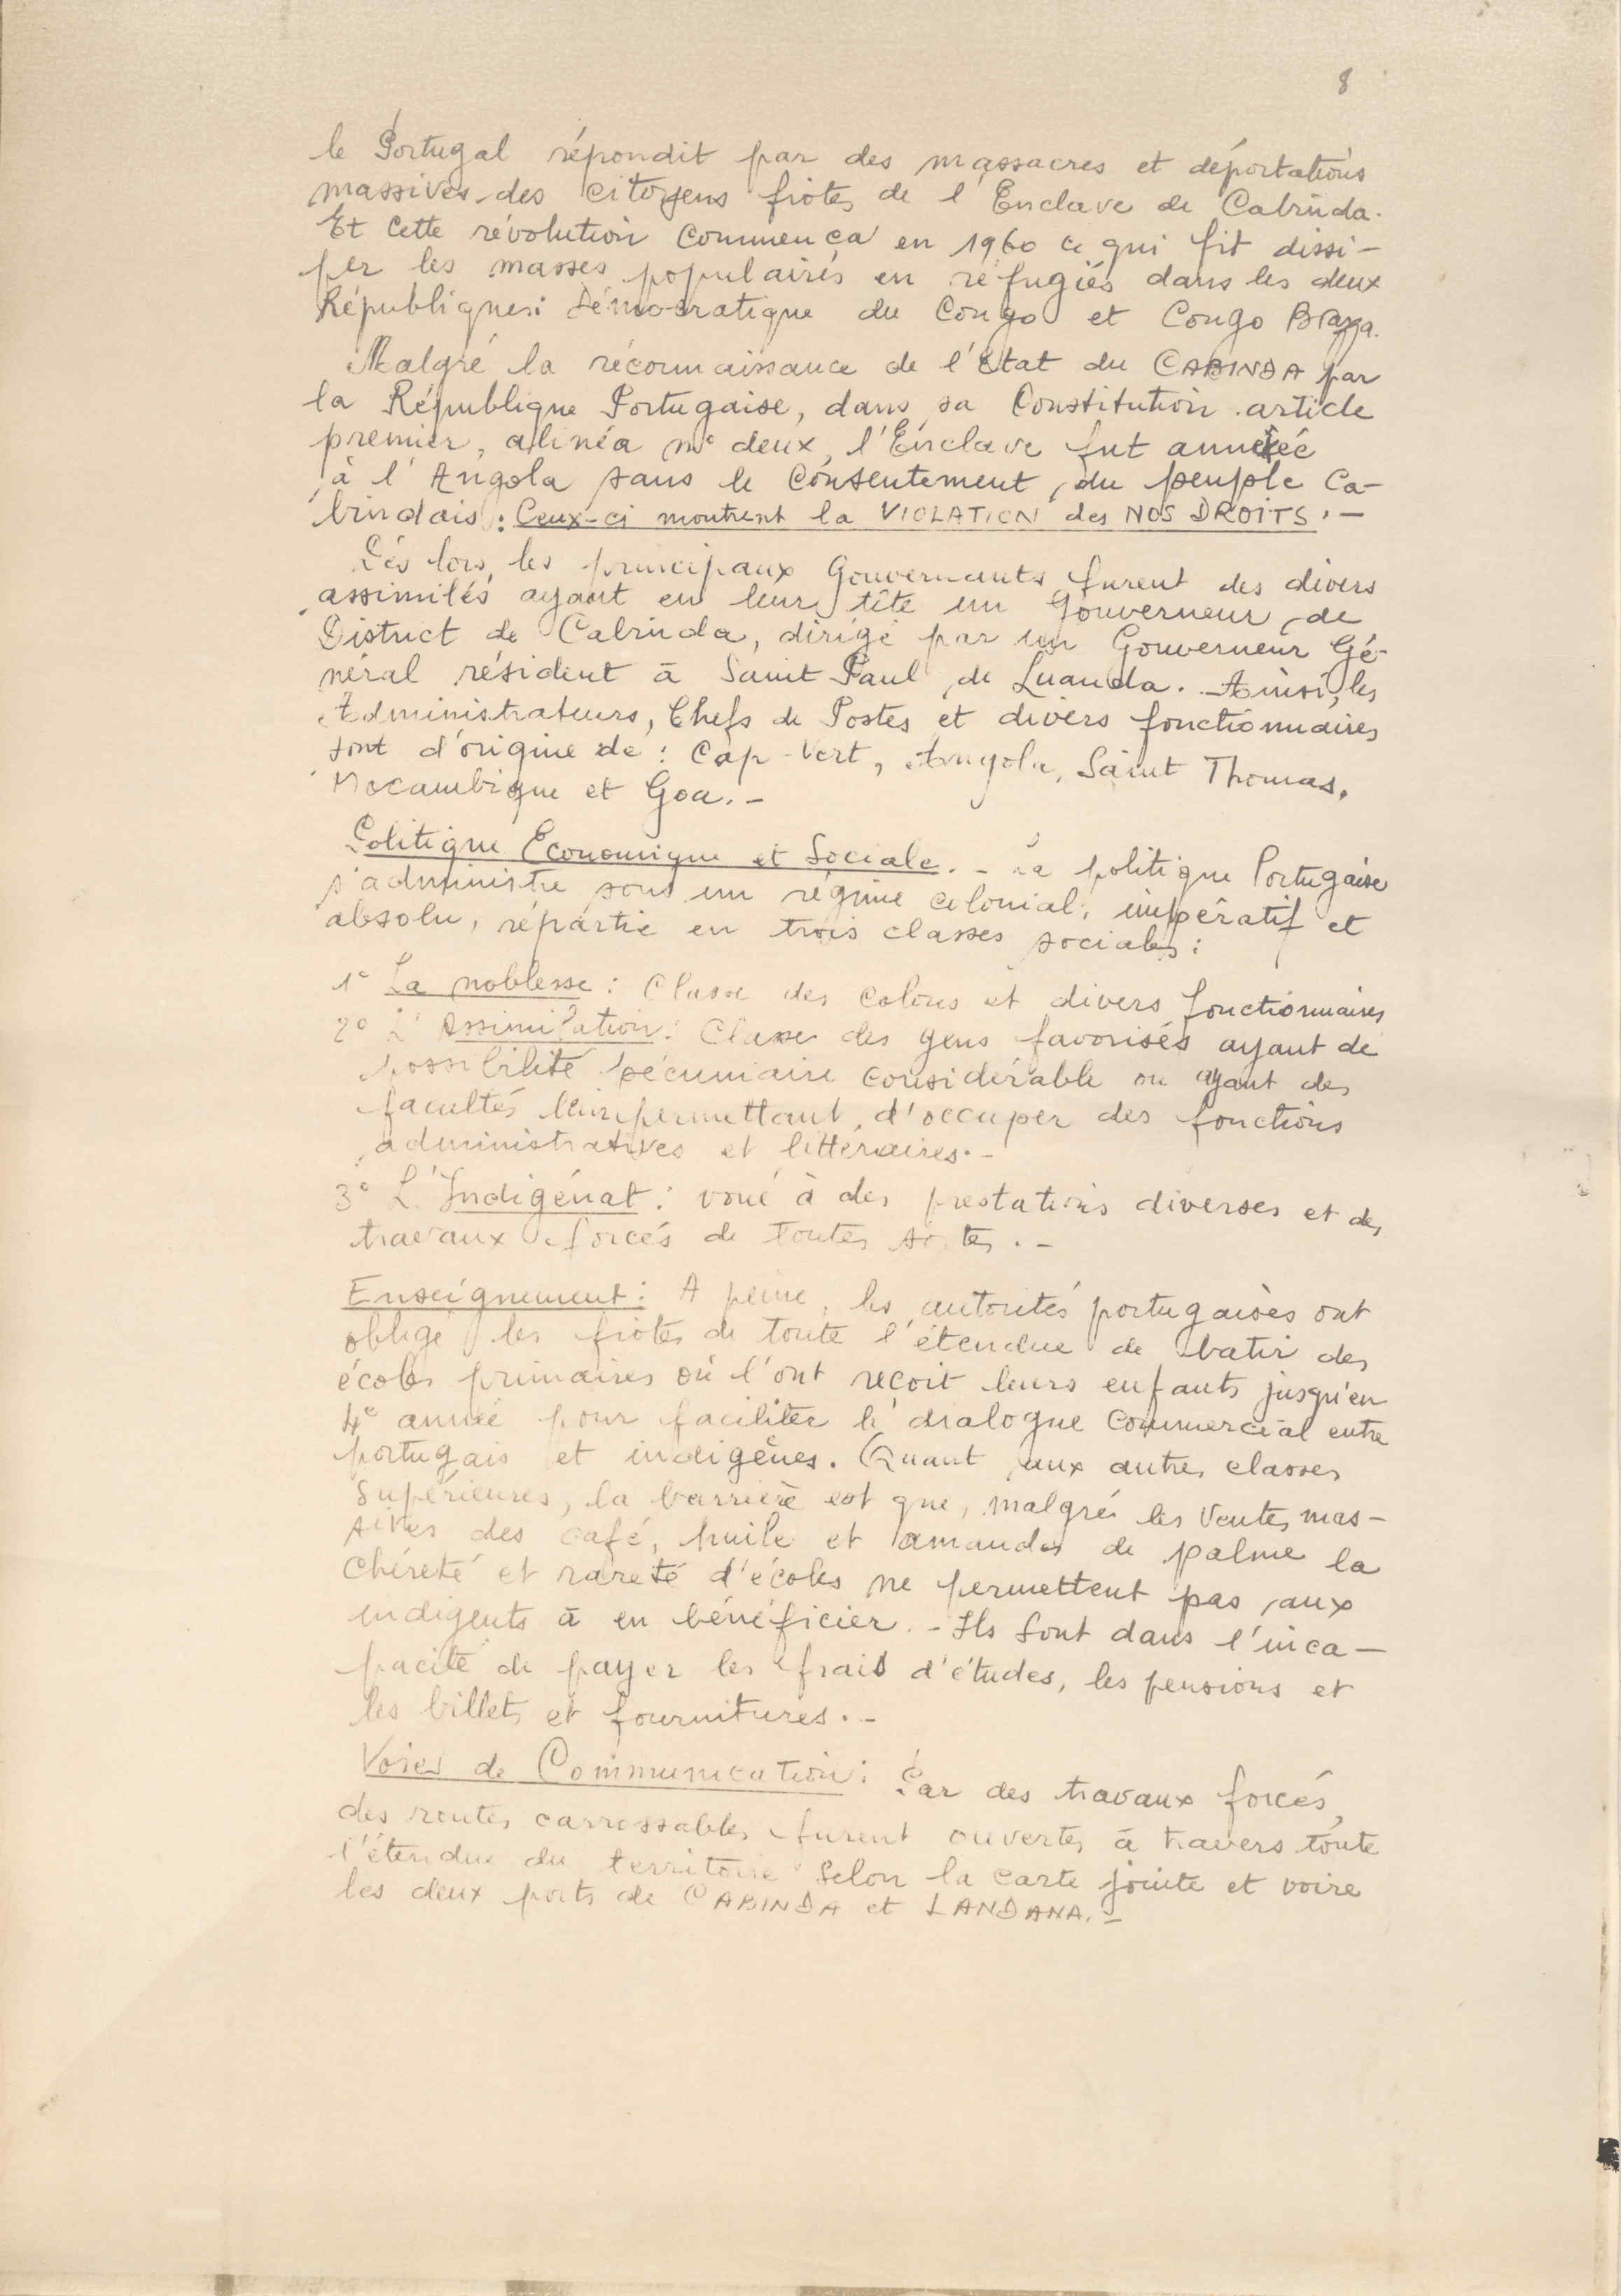 8
le Portugal répondit par des massacres et déportations
massives des citoyens fiotes de l'Enclave de Cabinda.
Et cette révolution commença en 1960 ce qui fit dissi-
per les masses populaires en réfugiés dans les deux
Républiques: Démocratique du Congo et Congo Brazza.
Malgré la réconnaissance de l'Etat du CABINDA par
la République Portugaise, dans sa Constitution article
premier, alinéa nº deux, l'Enclave fut annexée
à l'Angola sans le consentement du peuple Ca-
bindais: Ceux-ci montrent la VIOLATION des NOS DROITS.-
Dès lors, les principaux Gouvernants furent des divers
assimilés ayant en leur tête un Gouverneur de
District de Cabinda, dirigé par un Gouverneur Gé-
néral résident à Saint Paul de Luanda. Ainsi, les
Administrateurs, Chefs de Postes et divers fonctionnaires
sont d'origine de: Cap-Vert, Angola, Saint Thomas,
Mocambique et Goa.-
Politique Economique et Sociale.- La politique Portugaise
s'administre sous un régime colonial, impératif et
absolu, répartie en trois classes sociales:
1º La noblesse: Classe des colons et divers fonctionnaires
2º L'Assimilation: Classe des gens favorisés ayant de
possibilité pécuniaire considérable ou ayant des
facultés leur permettant d'occuper des fonctions
administratives et litteraires.-
3º L'Indigénat: voué à des prestations diverses et des
travaux forcés de toutes sortes.-
Enseignement: A peine, les autorités portugaises ont
obligé les fiotes de toute l'étendue de batir des
écoles primaires où l'ont reçoit leurs enfants jusqu'en
4º année pour faciliter le dialogue commercial entre
portugais et indigènes. Quant aux autres classes
Supérieures, la barrière est que, malgré les Ventes mas-
sives des café, huile et amandes de palme la
chéreté et rareté d'écoles ne permettent pas aux
indigents à en bénéficier.- Ils sont dans l'inca-
pacité de payer les frais d'études, les pensions et
les billets et fournitures.-
Voies de Communication: Par des travaux forcés,
des routes carrossables furent ouvertes à travers toute
l'étendue du territoire Selon la carte jointe et voire
les deux ports de CABINDA et LANDANA.-